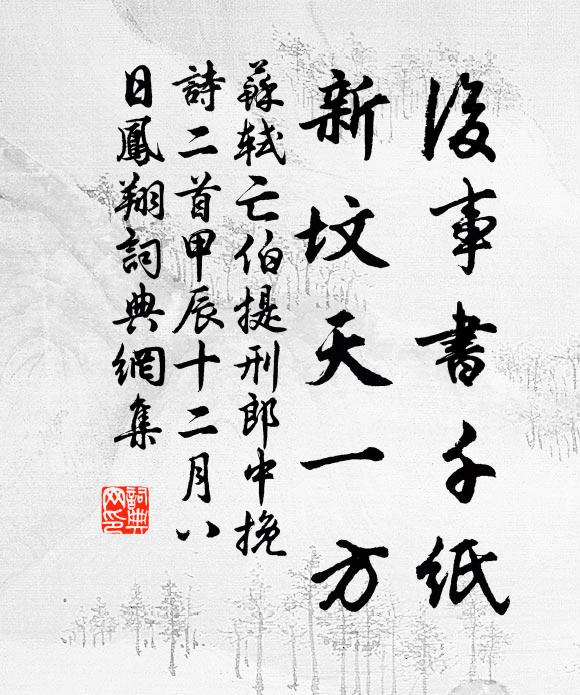 後事書千紙
新墳天一方
蘇軾亡伯提刑郎中挽
詩二首甲辰十二月八
日鳳翔詞典網集
詞典
网印